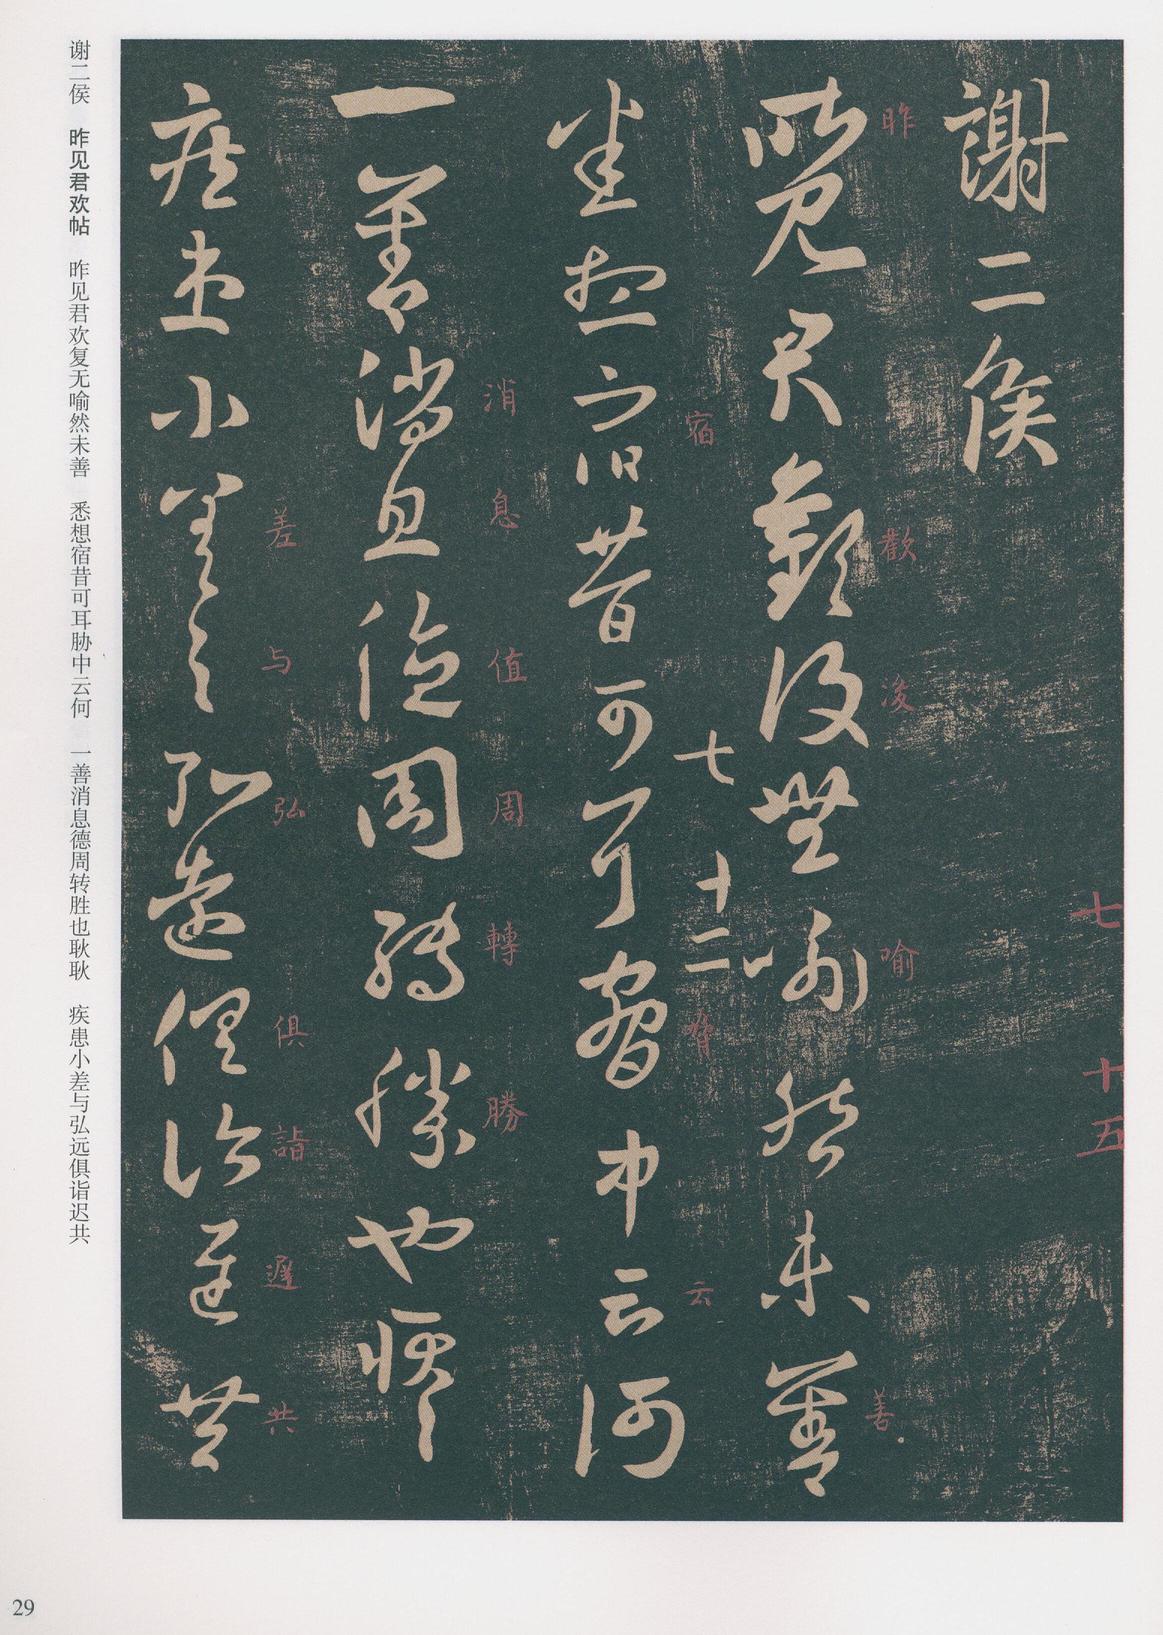 七
十五
謝二侯
昨 歡 喻 善
昨見君歡復無喻然未善
七
十二
宿 脅 云
悉想宿昔可耳脅中云何
消 息 值 周 轉 勝
一善消息德周轉勝也耿耿
差 与 弘 俱 詣 遲 共
疾患小差与弘遠俱詣遲共
谢二侯 昨见君欢帖 昨见君欢复无喻然未善 悉想宿昔可耳胁中云何 一善消息德周转胜也耿耿 疾患小差与弘远俱诣迟共
29